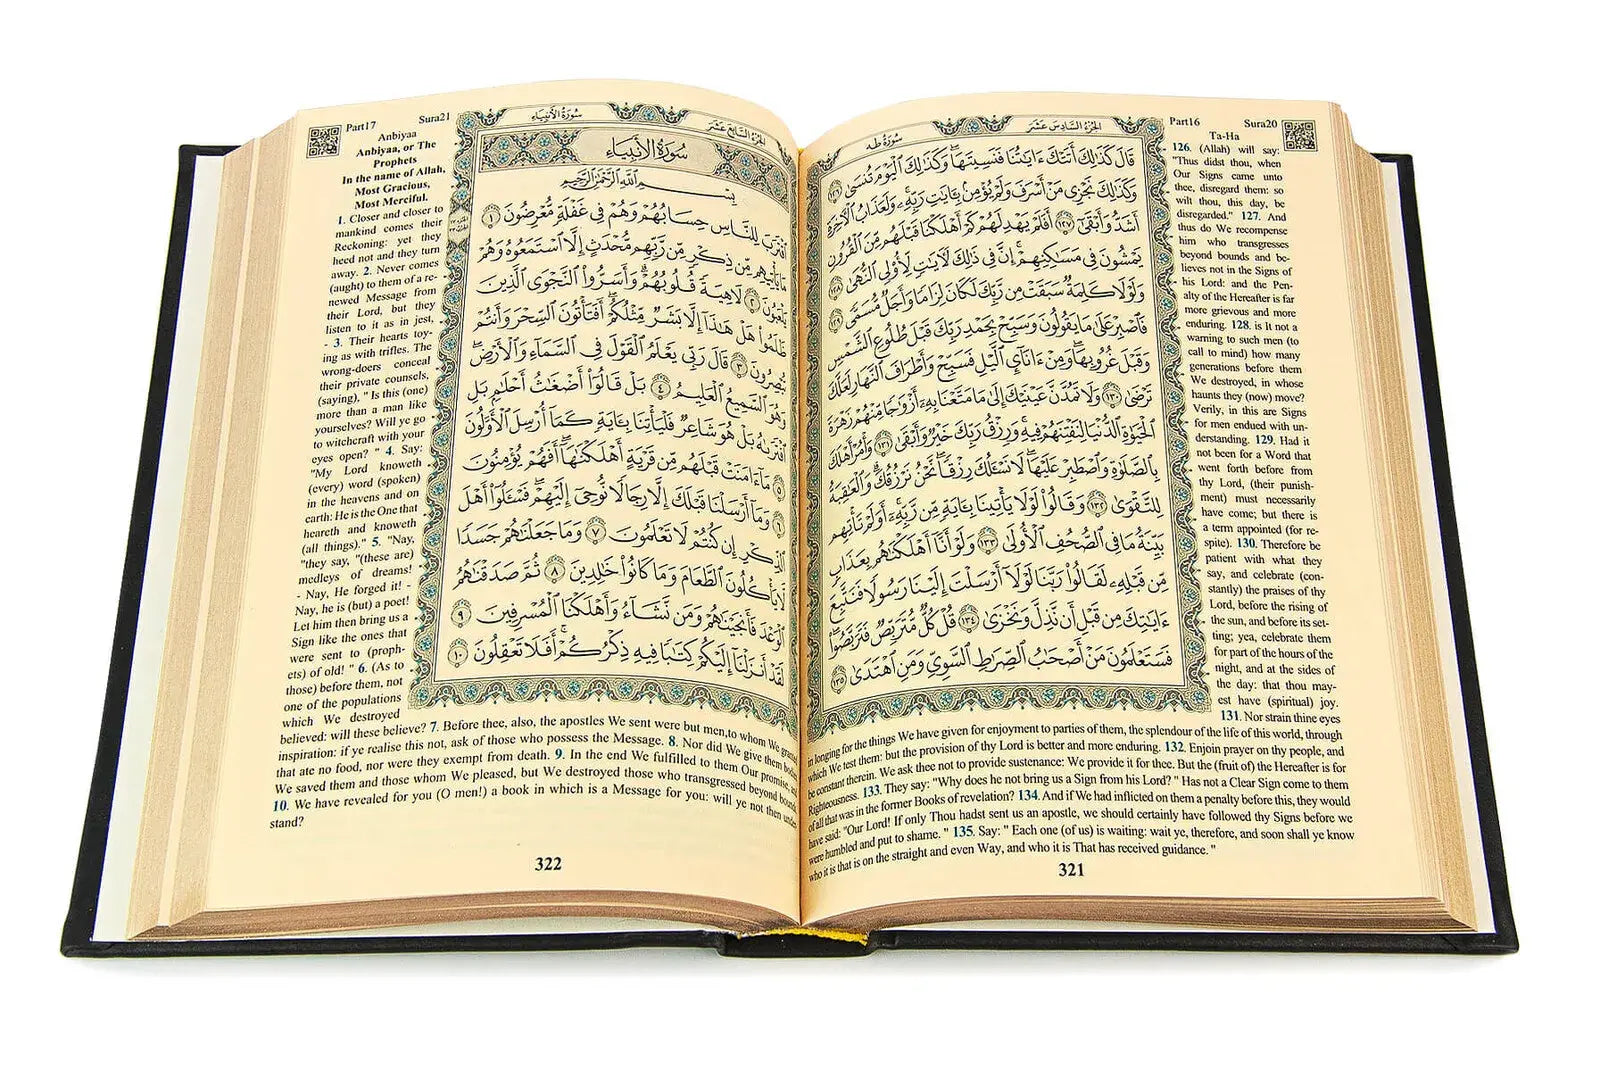 الجزء السادس عشر
سورة طه
قَالَ كَذَٰلِكَ أَتَتْكَ ءَايَٰتُنَا فَنَسِيتَهَا ۖ وَكَذَٰلِكَ ٱلْيَوْمَ تُنسَىٰ ١٢٦
وَكَذَٰلِكَ نَجْزِى مَنْ أَسْرَفَ وَلَمْ يُؤْمِنۢ بِـَٔايَٰتِ رَبِّهِۦ ۚ وَلَعَذَابُ ٱلْءَاخِرَةِ
أَشَدُّ وَأَبْقَىٰٓ ١٢٧ أَفَلَمْ يَهْدِ لَهُمْ كَمْ أَهْلَكْنَا قَبْلَهُم مِّنَ ٱلْقُرُونِ
يَمْشُونَ فِى مَسَٰكِنِهِمْ ۗ إِنَّ فِى ذَٰلِكَ لَءَايَٰتٍ لِّأُو۟لِى ٱلنُّهَىٰ ١٢٨
وَلَوْلَا كَلِمَةٌ سَبَقَتْ مِن رَّبِّكَ لَكَانَ لِزَامًا وَأَجَلٌ مُّسَمًّى ١٢٩
فَٱصْبِرْ عَلَىٰ مَا يَقُولُونَ وَسَبِّحْ بِحَمْدِ رَبِّكَ قَبْلَ طُلُوعِ ٱلشَّمْسِ
وَقَبْلَ غُرُوبِهَا ۖ وَمِنْ ءَانَآئِ ٱلَّيْلِ فَسَبِّحْ وَأَطْرَافَ ٱلنَّهَارِ لَعَلَّكَ
تَرْضَىٰ ١٣٠ وَلَا تَمُدَّنَّ عَيْنَيْكَ إِلَىٰ مَا مَتَّعْنَا بِهِۦٓ أَزْوَٰجًا مِّنْهُمْ زَهْرَةَ
ٱلْحَيَوٰةِ ٱلدُّنْيَا لِنَفْتِنَهُمْ فِيهِ ۚ وَرِزْقُ رَبِّكَ خَيْرٌ وَأَبْقَىٰ ١٣١ وَأْمُرْ أَهْلَكَ
بِٱلصَّلَوٰةِ وَٱصْطَبِرْ عَلَيْهَا ۖ لَا نَسْـَٔلُكَ رِزْقًا ۖ نَّحْنُ نَرْزُقُكَ ۗ وَٱلْعَٰقِبَةُ
لِلتَّقْوَىٰ ١٣٢ وَقَالُوا۟ لَوْلَا يَأْتِينَا بِـَٔايَةٍ مِّن رَّبِّهِۦٓ ۚ أَوَلَمْ تَأْتِهِم
بَيِّنَةُ مَا فِى ٱلصُّحُفِ ٱلْأُولَىٰ ١٣٣ وَلَوْ أَنَّآ أَهْلَكْنَٰهُم بِعَذَابٍ
مِّن قَبْلِهِۦ لَقَالُوا۟ رَبَّنَا لَوْلَآ أَرْسَلْتَ إِلَيْنَا رَسُولًا فَنَتَّبِعَ
ءَايَٰتِكَ مِن قَبْلِ أَن نَّذِلَّ وَنَخْزَىٰ ١٣٤ قُلْ كُلٌّ مُّتَرَبِّصٌ فَتَرَبَّصُوا۟ ۖ
فَسَتَعْلَمُونَ مَنْ أَصْحَٰبُ ٱلصِّرَٰطِ ٱلسَّوِىِّ وَمَنِ ٱهْتَدَىٰ ١٣٥
Part16 Sura20
Ta-Ha
126. (Allah) will say:
"Thus didst thou, when
Our Signs came unto
thee, disregard them: so
wilt thou, this day, be
disregarded." 127. And
thus do We recompense
him who transgresses
beyond bounds and be-
lieves not in the Signs of
his Lord: and the Pen-
alty of the Hereafter is far
more grievous and more
enduring. 128. is It not a
warning to such men (to
call to mind) how many
generations before them
We destroyed, in whose
haunts they (now) move?
Verily, in this are Signs
for men endued with un-
derstanding. 129. Had it
not been for a Word that
went forth before from
thy Lord, (their punish-
ment) must necessarily
have come; but there is
a term appointed (for re-
spite). 130. Therefore be
patient with what they
say, and celebrate (con-
stantly) the praises of thy
Lord, before the rising of
the sun, and before its set-
ting; yea, celebrate them
for part of the hours of the
night, and at the sides of
the day: that thou may-
est have (spiritual) joy.
131. Nor strain thine eyes
in longing for the things We have given for enjoyment to parties of them, the splendour of the life of this world, through
which We test them: but the provision of thy Lord is better and more enduring. 132. Enjoin prayer on thy people, and
be constant therein. We ask thee not to provide sustenance: We provide it for thee. But the (fruit of) the Hereafter is for
Righteousness. 133. They say: "Why does he not bring us a Sign from his Lord? " Has not a Clear Sign come to them
of all that was in the former Books of revelation? 134. And if We had inflicted on them a penalty before this, they would
have said: "Our Lord! If only Thou hadst sent us an apostle, we should certainly have followed thy Signs before we
were humbled and put to shame. " 135. Say: " Each one (of us) is waiting: wait ye, therefore, and soon shall ye know
who it is that is on the straight and even Way, and who it is That has received guidance. "
321
الجزء السابع عشر
سورة الأنبياء
سورة الأنبياء
بِسْمِ ٱللَّهِ ٱلرَّحْمَٰنِ ٱلرَّحِيمِ
ٱقْتَرَبَ لِلنَّاسِ حِسَابُهُمْ وَهُمْ فِى غَفْلَةٍ مُّعْرِضُونَ ١
مَا يَأْتِيهِم مِّن ذِكْرٍ مِّن رَّبِّهِم مُّحْدَثٍ إِلَّا ٱسْتَمَعُوهُ وَهُمْ
يَلْعَبُونَ ٢ لَاهِيَةً قُلُوبُهُمْ ۗ وَأَسَرُّوا۟ ٱلنَّجْوَى ٱلَّذِينَ
ظَلَمُوا۟ هَلْ هَٰذَآ إِلَّا بَشَرٌ مِّثْلُكُمْ ۖ أَفَتَأْتُونَ ٱلسِّحْرَ وَأَنتُمْ
تُبْصِرُونَ ٣ قَالَ رَبِّى يَعْلَمُ ٱلْقَوْلَ فِى ٱلسَّمَآءِ وَٱلْأَرْضِ ۖ
وَهُوَ ٱلسَّمِيعُ ٱلْعَلِيمُ ٤ بَلْ قَالُوٓا۟ أَضْغَٰثُ أَحْلَٰمٍۭ بَلِ
ٱفْتَرَىٰهُ بَلْ هُوَ شَاعِرٌ فَلْيَأْتِنَا بِـَٔايَةٍ كَمَآ أُرْسِلَ ٱلْأَوَّلُونَ
٥ مَآ ءَامَنَتْ قَبْلَهُم مِّن قَرْيَةٍ أَهْلَكْنَٰهَآ ۖ أَفَهُمْ يُؤْمِنُونَ
٦ وَمَآ أَرْسَلْنَا قَبْلَكَ إِلَّا رِجَالًا نُّوحِىٓ إِلَيْهِمْ ۖ فَسْـَٔلُوٓا۟ أَهْلَ
ٱلذِّكْرِ إِن كُنتُمْ لَا تَعْلَمُونَ ٧ وَمَا جَعَلْنَٰهُمْ جَسَدًا
لَّا يَأْكُلُونَ ٱلطَّعَامَ وَمَا كَانُوا۟ خَٰلِدِينَ ٨ ثُمَّ صَدَقْنَٰهُمُ
ٱلْوَعْدَ فَأَنجَيْنَٰهُمْ وَمَن نَّشَآءُ وَأَهْلَكْنَا ٱلْمُسْرِفِينَ ٩
لَقَدْ أَنزَلْنَآ إِلَيْكُمْ كِتَٰبًا فِيهِ ذِكْرُكُمْ ۖ أَفَلَا تَعْقِلُونَ ١٠
Part17 Sura21
Anbiyaa
Anbiyaa, or The
Prophets
In the name of Allah,
Most Gracious,
Most Merciful.
1. Closer and closer to
mankind comes their
Reckoning: yet they
heed not and they turn
away. 2. Never comes
(aught) to them of a re-
newed Message from
their Lord, but they
listen to it as in jest,
- 3. Their hearts toy-
ing as with trifles. The
wrong-doers conceal
their private counsels,
(saying), " Is this (one)
more than a man like
yourselves? Will ye go
to witchcraft with your
eyes open? " 4. Say:
"My Lord knoweth
(every) word (spoken)
in the heavens and on
earth: He is the One that
heareth and knoweth
(all things)." 5. "Nay,
"they say, "(these are)
medleys of dreams!
- Nay, He forged it! -
Nay, he is (but) a poet!
Let him then bring us a
Sign like the ones that
were sent to (proph-
ets) of old! " 6. (As to
those) before them, not
one of the populations
which We destroyed
believed: will these believe? 7. Before thee, also, the apostles We sent were but men,to whom We
inspiration: if ye realise this not, ask of those who possess the Message. 8. Nor did We give them
that ate no food, nor were they exempt from death. 9. In the end We fulfilled to them Our promise,
We saved them and those whom We pleased, but We destroyed those who transgressed beyond
10. We have revealed for you (O men!) a book in which is a Message for you: will ye not then under
stand?
322